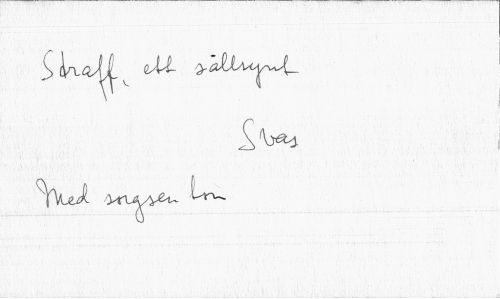 Straff, ett sällsynt
Svas
Med sorgsen ton